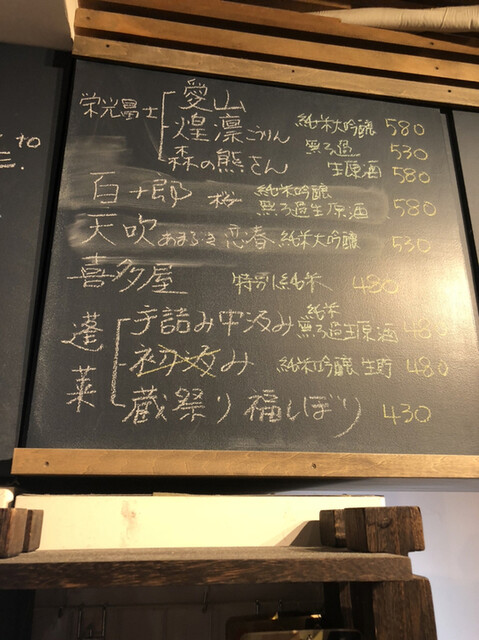 to
栄光冨士 愛山 純米大吟醸 580
煌凛こうりん 無ろ過 530
森の熊さん 生原酒 580
百十郎 桜 純米吟醸 無ろ過生原酒 580
天吹 あまぶき 恋春 純米大吟醸 530
喜多屋 特別純米 480
蓬莱 手詰み中汲み 純米 無ろ過生原酒 480
初汲み 純米吟醸生貯 480
蔵祭り 福しぼり 430